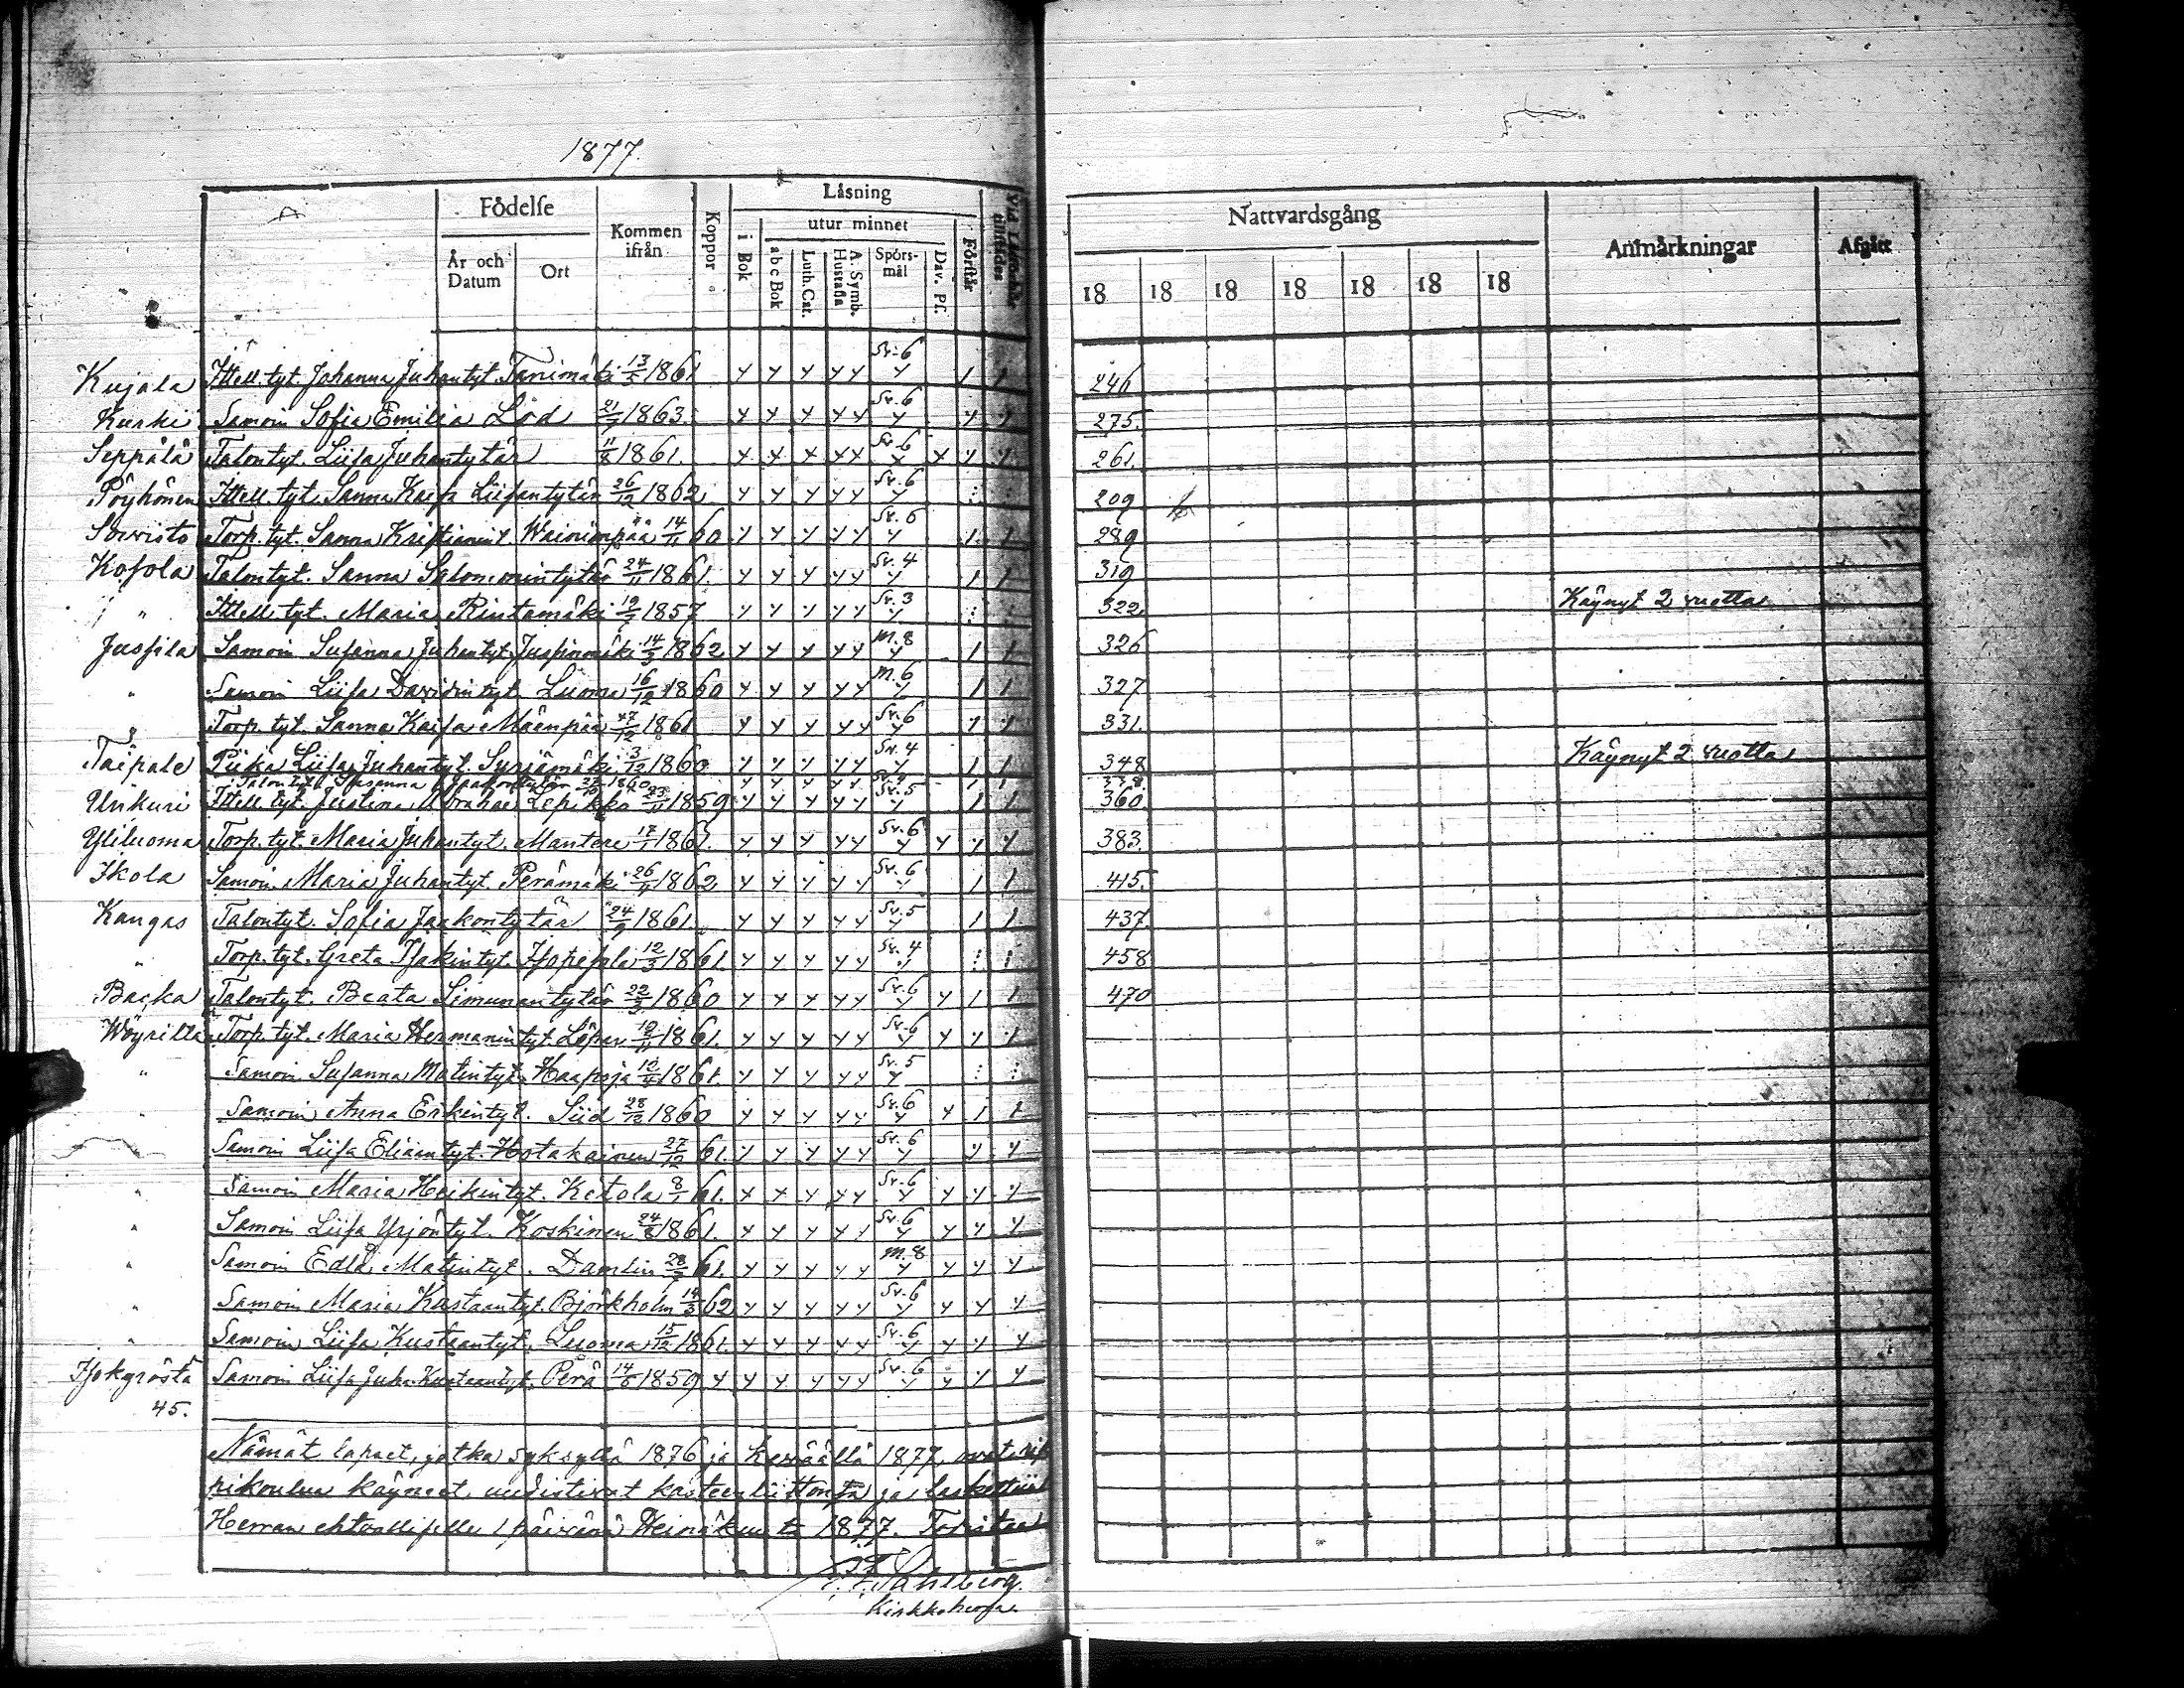 1877.
Födelse
Kommen ifrån
Koppor
Läsning
utur minnet
År och Datum
Ort
i Bok
abc Bok
Luth. Cat.
A. Symb. Hustafla
Spörsmål
Dav. Ps.
Förstår
Nattvardsgång
Anmärkningar
Afgått
18 18 18 18 18 18 18
Kujala Ittell. tyt. Johanna Juhantyt. 1861 y y y y y Sv. 6 y 1 1 246
Samoin Sofia Emilia Löd 21 1863. y y y y y Sv. 6 y y y 275.
Seppälä Talontyt. Liisa Juhantytär 11/8 1861. y y y y y Sv. 6 y y y y 261.
Pöyhönen Ittell. tyt. Sanna Kaisa Liisantytär 26/12 1862 y y y y y Sv. 6 y 209
Torp. tyt. Sanna 14/11 60 y y y y y Sv. 6 y 1 1 289
Kosola Talontyt. Sanna Salomonintytär 24/11 1861. y y y y y Sv. 4 y 1 1 319
" Ittell. tyt. Maria Rintamäki 1857 y y y y y Sv. 3 y 322. Käynyt 2 vuotta
Jussila Samoin Susanna Juhantyt. 14/3 1862 y y y y y M. 8 y 1 1 326
" Samoin Liisa Davidintyt. Luoma 16/12 1860 y y y y y M. 6 y 1 1 327
" Torp. tyt. Sanna Kaisa Mäenpää 27/12 1861 y y y y y Sv. 6 y y y 331.
Taipale Piika Liisa Juhantyt. Syrjämäki 3/12 1860 y y y y y Sv. 4 y 1 1 348 Käynyt 2 vuotta
Talontyt. Susanna 1860 338.
Ittell. tyt. Justina Lepikko 23/11 1859 y y y y y Sv. 5 y 1 1 360
Yliluoma Torp. tyt. Maria Juhantyt. Mantere 17/1 1861. y y y y y Sv. 6 y y y y 383.
Ikola Samoin Maria Juhantyt. Perämäki 26 1862 y y y y y Sv. 6 y 1 1 415.
Kangas Talontyt. Sofia Jaakontytär 24/9 1861. y y y y y Sv. 5 y 1 1 437.
" Torp. tyt. Greta Isakintyt. 12/3 1861. y y y y y Sv. 4 y 458
Backa Talontyt. Beata Simunantytär 22/3 1860 y y y y y Sv. 6 y y 1 1 470
Wöyriltä Torp. tyt. Maria Hermanintyt. 1861. y y y y y Sv. 6 y y y 1
" Samoin Susanna Matintyt. Haapoja 12/4 1861. y y y y y Sv. 5 y
" Samoin Anna Erkintyt. Siid 28/12 1860 y y y y y Sv. 6 y y 1 1
Samoin Liisa Eliaantyt. Hotakainen 27/12 61. y y y y y Sv. 6 y y y
" Samoin Maria Heikintyt. Ketola 8/1 61. y y y y y Sv. 6 y y y y
" Samoin Liisa Yrjöntyt. Koskinen 24/8 1861. y y y y y Sv. 6 y y y y
" Samoin Edla Matintyt. Damlin 28 61. y y y y y M. 8 y y y y
" Samoin Maria Kustaantyt. Björkholm 14/3 62 y y y y y Sv. 6 y y y y
" Samoin Liisa Kustaantyt. Luoma 15/12 1861. y y y y y Sv. 6 y y y y
Isokyröstä Samoin Liisa Juha Kustaantyt. Perä 14/6 1859 y y y y y y Sv. 6 y y y y
45.
Nämät lapset, jotka syksyllä 1876 ja kesäällä 1877, ovat rip
pikoulua käyneet, uudistivat kasteenliittonsa ja laskettiin
Herran ehtoolliselle 1 päivänä Heinäkuuta 1877. Todistaa
Kirkkoherra.